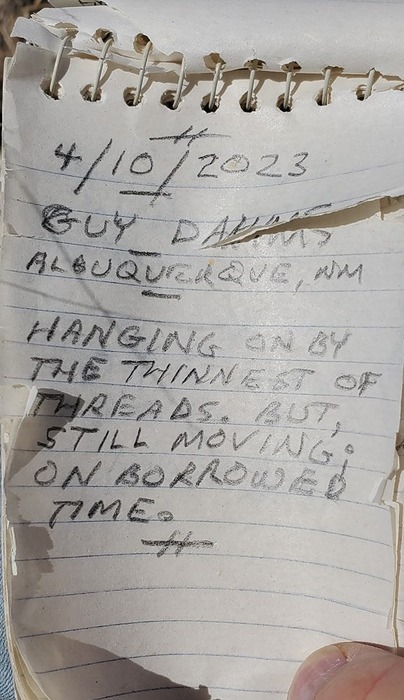 4/10/2023
GUY DAHMS
ALBUQUERQUE, NM
HANGING ON BY
THE THINNEST OF
THREADS. BUT,
STILL MOVING;
ON BORROWED
TIME.